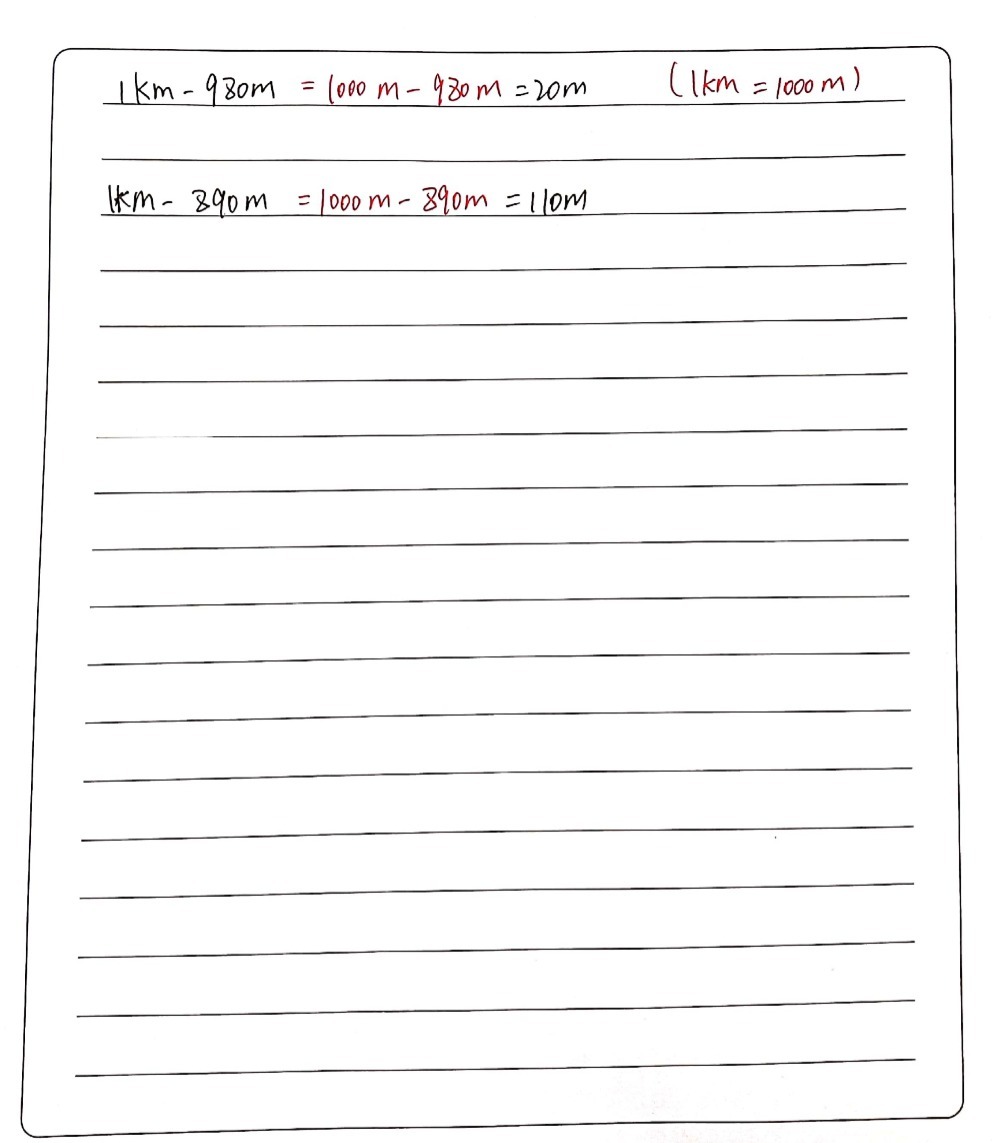 1km - 980m = 1000m - 980m = 20m (1km = 1000m)
1km - 890m = 1000m - 890m = 110m